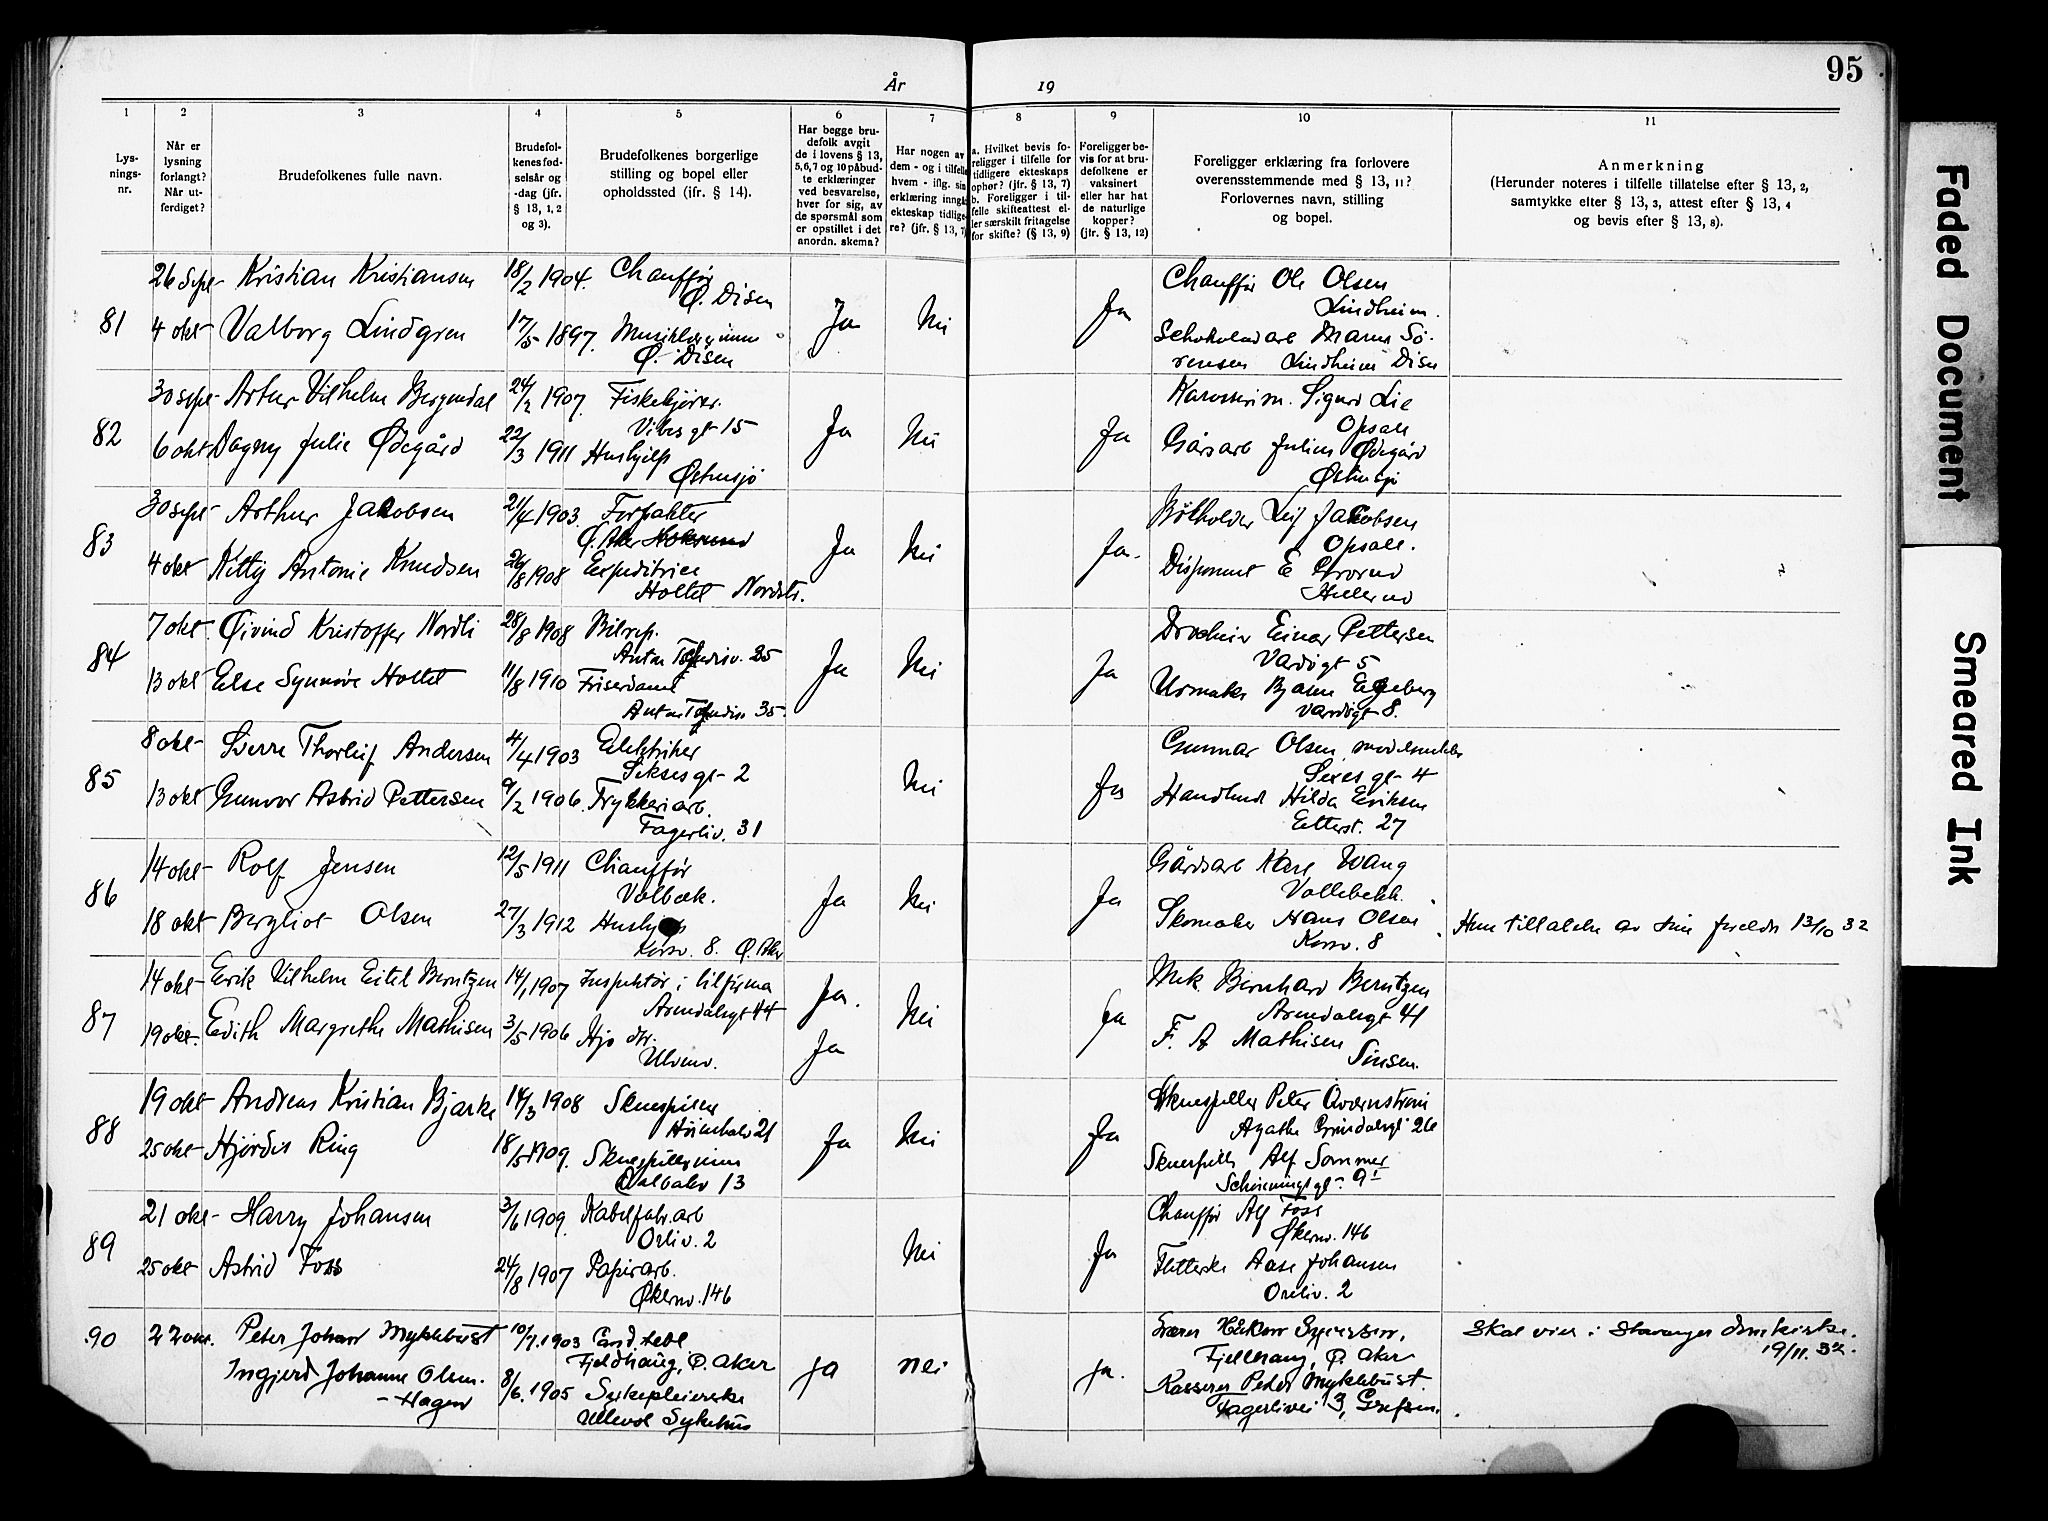 95
År 19
1 2 3 4 5 6 7 8 9 10 11
Lys-
nings-
nr.
Når er
lysning
forlangt?
Når ut-
ferdiget?
Brudefolkenes fulle navn.
Brudefol-
kenes fød-
selsår og
-dag (jfr.
§ 13, 1, 2
og 3).
Brudefolkenes borgerlige
stilling og bopel eller
opholdssted (jfr. § 14).
Har begge bru-
defolk avgit
de i lovens § 13,
5, 6, 7 og 10 påbud-
te erklæringer
ved besvarelse,
hver for sig, av
de spørsmål som
er opstillet i det
anordn. skema?
Har nogen av
dem - og i tilfelle
hvem - iflg. sin
erklæring inngått
ekteskap tidlige-
re? (jfr. § 13, 7)
a. Hvilket bevis fo-
religger i tilfelle for
tidligere ekteskaps
ophør? (jfr. § 13, 7)
b. Foreligger i til-
felle skifteattest el-
ler særskilt fritagelse
for skifte? (§ 13, 9)
Foreligger be-
vis for at bru-
defolkene er
vaksinert
eller har hat
de naturlige
kopper?
(jfr. § 13, 12)
Foreligger erklæring fra forlovere
overensstemmende med § 13, 11?
Forlovernes navn, stilling
og bopel.
Anmerkning
(Herunder noteres i tilfelle tillatelse efter § 13, 2,
samtykke efter § 13, 3, attest efter § 13, 4
og bevis efter § 13, 8).
81
26 sept Kristian Kristiansen 18/2 1904. Chauffør
Ø. Disen
4 okt Valborg Lindgren 17/5 1897.
Ø. Disen
Ja Nei Ja
Chauffør Ole Olsen
Lindheim.
Sø-
rensen Lindheim Disen
82
30 sept Artur Vilhelm Bergendal 24/2 1907. Fiskekjører.
Vibesgt 15
6 okt Dagny Julie Ødegård 22/3 1911 Hushjelp
Østensjø
Ja Nei Ja
Sigurd Lie
Opsal
Gårsarb Julius Ødegård
Østensjø
83
30 sept Arthur Jakobsen 21/4 1903. Forpakter
Ø. Aker
4 okt Kitty Antonie Knudsen 26/8 1908 Expeditrice
Holtet Nordstr.
Ja Nei Ja.
Leif Jakobsen
Opsal.
Disponent E
84
7 okt Øivind Kristoffer Nordli 28/8 1908 Bilrep.
13 okt Else Synnøve Holtet 11/8 1910 Friserdame
35.
Ja Nei Ja
Einar Pettersen
Vardøgt 5
Urmaker Bjarne Ekeberg
Vardøgt 8.
85
8 okt Sverre Thorleif Andersen 4/4 1903 Elektriker
Seksesgt 2
13 okt Gunvor Astrid Pettersen 9/2 1906. Trykkeriarb.
Fagerliv. 31
Nei Ja
Gunnar Olsen
Sexesgt 4
Hilda Eriksen
Etterst. 27
86
14 okt Rolf Jensen 12/5 1911 Chauffør
18 okt Bergliot Olsen 27/3 1912
Korsv. 8. Ø. Aker
Ja Nei Ja
Gårdsarb Karl Wang
Vollebekk.
Skomaker Hans Olsen
Korsv. 8
Hun tillatelse av sine foreldre 13/10 32
87
14 okt Erik Vilhelm Eitel Berntzen 14/1 1907 Inspektør i
Arendalsgt 44
19 okt. Edith Margrethe Mathisen 3/5 1906 Hjv dtr.
Ulvenv.
Ja. Ja Nei Ja
Mek. Bernhard Berntzen
Arendalsgt 41
F. A Mathisen
Sinsen.
88
19 okt Andreas Kristian Bjarke 14/3 1908 Skuespiller
25 okt Hjørdis Ring 18/5 1909. Skuespillerinne
13
Ja Nei Ja
Skuespiller Peter Qvarnstrøm
Agathe Grøndalsgt 26
Skuespill. Alf Sommer
Schøningsgt 9 I
89
21 okt Harry Johansen 3/6 1909. Kabelfabr. arb
Orliv. 2
25 okt Astrid Foss 24/8 1907 Papirarb.
Økernv. 146
Nei Ja
Chauffør Alf Foss
Økernv. 146
Aase Johansen
2
90
22 Peter Johan Myklebust 10/7. 1903
Fjeldhaug, Ø. Aker
Ingjerd Johanne Olsen- 8/6. 1905 Sykepleierske
- Hagen Ullevol Sykehus
ja nei ja.
Fjellhaug, Ø. Aker
Kasserer Peder Myklebust.
Fagerlivei 3, Grefsen.
Skal vies i Stavanger domkirke.
19/11. 32.
Faded Document
Smeared Ink